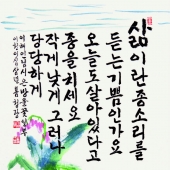 삶이란종소리를
듣는기쁨인가요
오늘도살아있다고
종을치세요
작게낮게그러나
당당하게
이해인님시은방울꽃